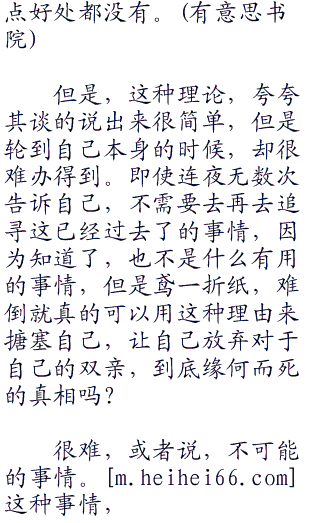 点好处都没有。(有意思书
院)
但是，这种理论，夸夸
其谈的说出来很简单，但是
轮到自己本身的时候，却很
难办得到。即使连夜无数次
告诉自己，不需要去再去追
寻这已经过去了的事情，因
为知道了，也不是什么有用
的事情，但是鸢一折纸，难
倒就真的可以用这种理由来
搪塞自己，让自己放弃对于
自己的双亲，到底缘何而死
的真相吗？
很难，或者说，不可能
的事情。[m.heihei66.com]
这种事情，